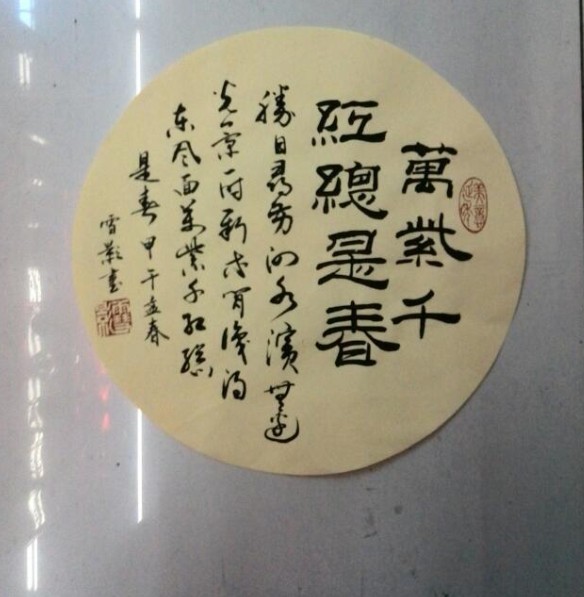 萬紫千
紅總是春
勝日尋芳泗水濱無邊
光景一时新等閒識得
东风面萬紫千红總
是春 甲午孟春
雪影書